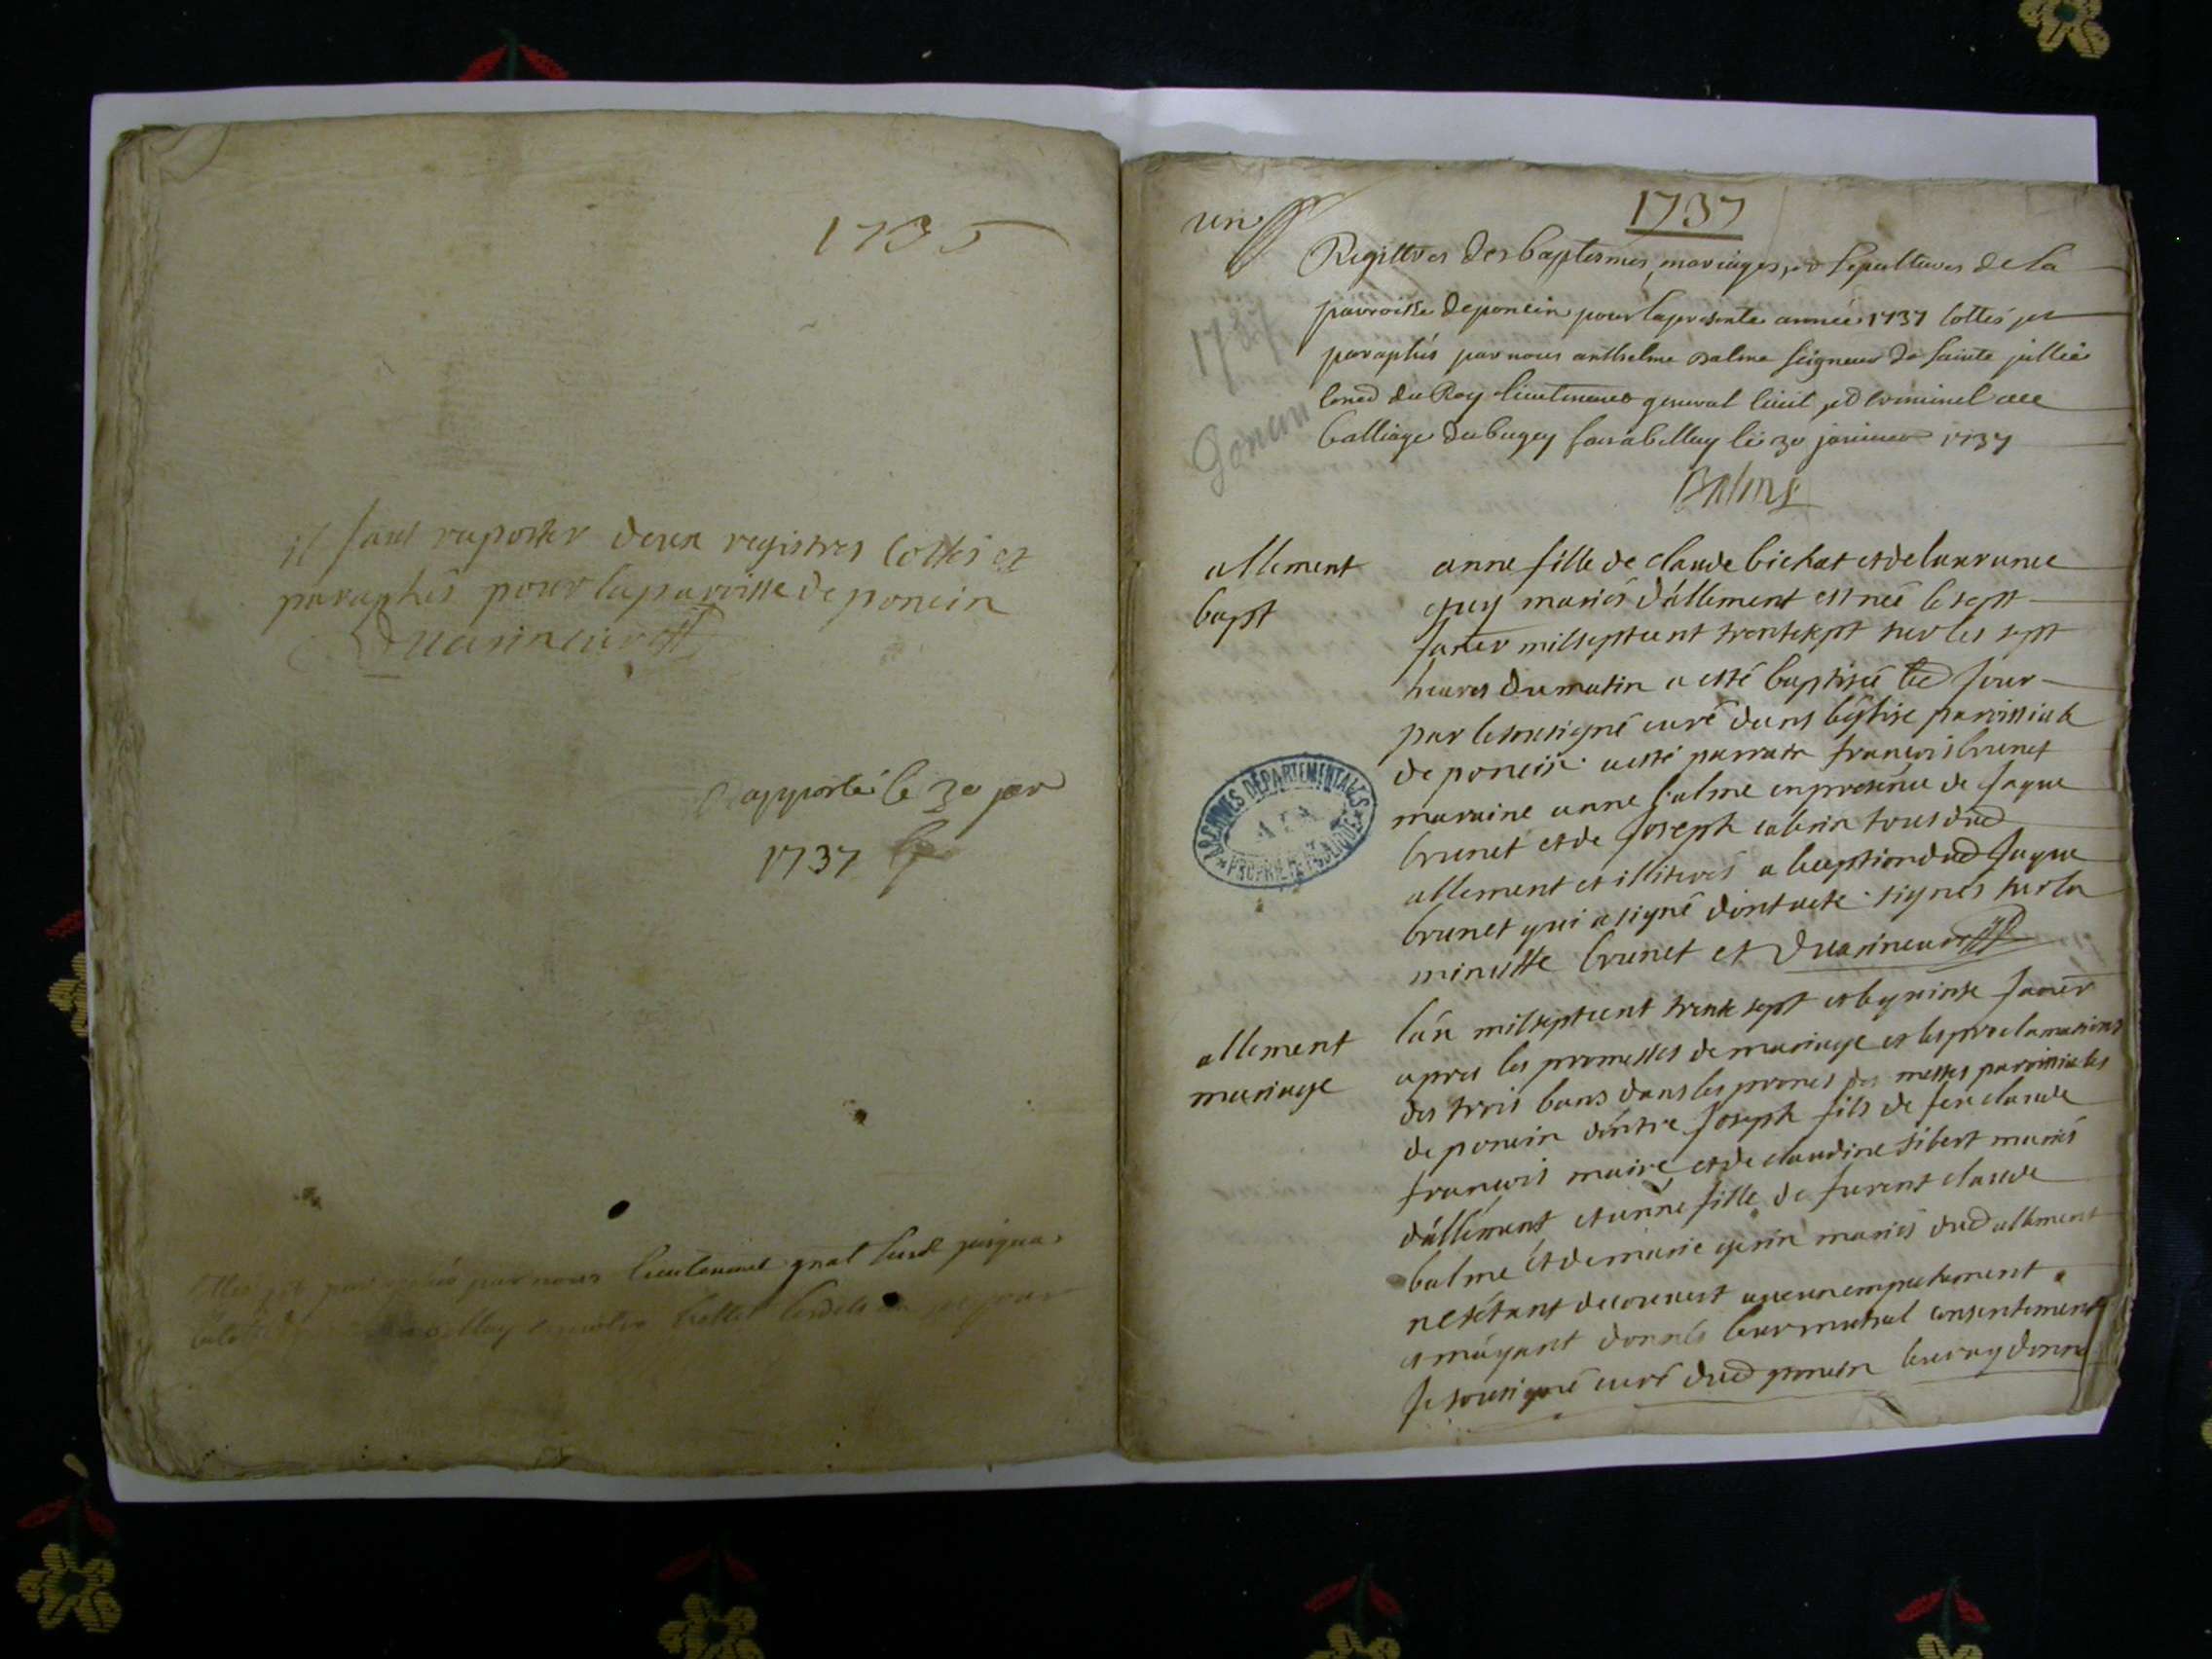 1735
il faut raporter deux registres cottés et
paraphés pour la paroisse de poncin
Duarineure
Rapporté le 30 jer
1737
par nous lieutenant gnal
1737
un
Registres des baptesmes, mariages, et sepultures de la
parroisse de poncin pour la presente année 1737 cottés et
paraphés par nous anthelme Balme seigneur de sainte jullie
consd du Roy lieutenant general civil et criminel au
balliage du bugey fait a belley le 30 janvier 1737
Balme
1737
Poncin
allement
bapt
anne fille de claude bichat et de laurance
mariés d'allement est née le sept
janer mil sept cent trente sept sur les sept
heures du matin a esté baptisée led jour
par le sousigné curé dans l'eglise paroissiale
de poncin a esté parrain françois brunet
maraine anne balme en presence de jaque
brunet et de joseph cabrin tous dud
allement et illiterés a l'exeption dud jaque
brunet qui a signé dont acte signés sur la
minutte brunet et Duarineure
ARCHIVES DÉPARTEMENTALES
AIN
PROPRIÉTÉ PUBLIQUE
allement
mariage
l'an mil sept cent trente sept et le quinse janer
apres les promesses de mariage et les proclamations
des trois bans dans les prones des messes paroissiales
de poncin d'entre joseph fils de feu claude
françois maire et de claudine sibert mariés
d'allement et anne fille de furent claude
balme et de marie mariés dud allement
ne s'etant decouvert aucun empechement
et m'ayant donnés leur mutuel consentement
je sousigné curé dud poncin leur ay donné